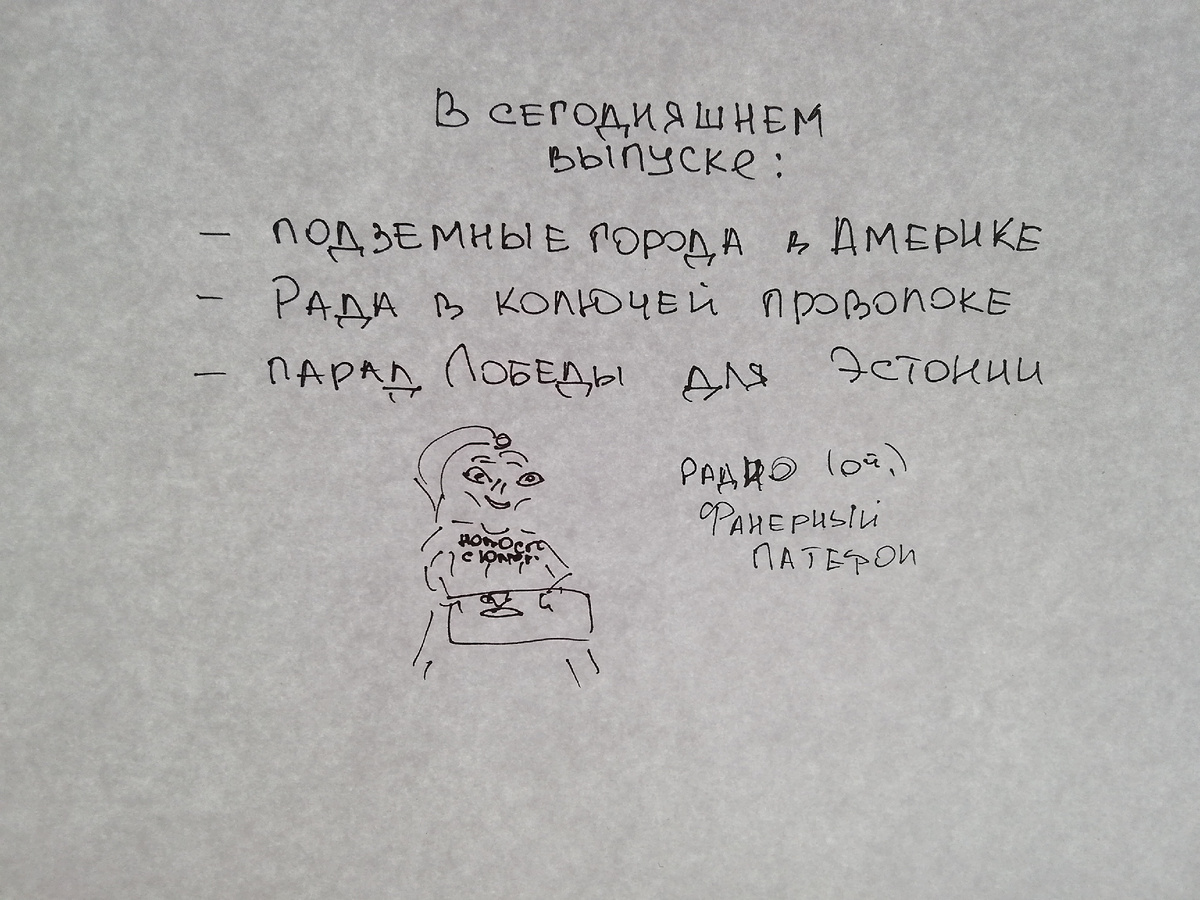 В СЕГОДНЯШНЕМ
ВЫПУСКЕ:
— ПОДЗЕМНЫЕ ГОРОДА В АМЕРИКЕ
— РАДА В КОЛЮЧЕЙ ПРОВОЛОКЕ
— ПАРАД ПОБЕДЫ ДЛЯ ЭСТОНИИ
РАДИО (ОЙ,)
ФАНЕРНЫЙ
ПАТЕФОН